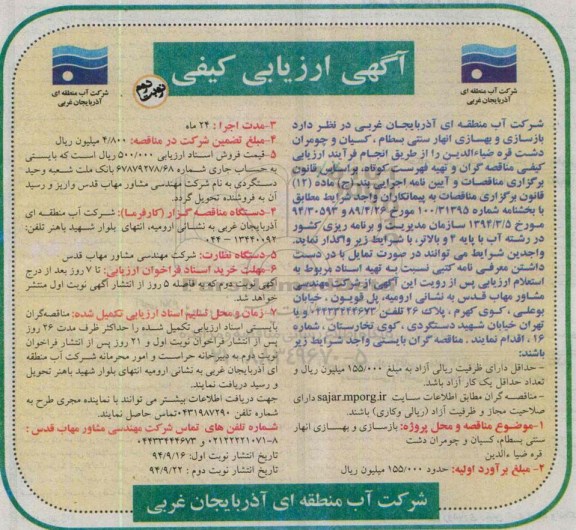 آگهی ارزیابی کیفی
نوبت دوم
شرکت آب منطقه ای
آذربایجان غربی
شرکت آب منطقه ای
آذربایجان غربی
شرکت آب منطقه ای آذربایجان غربی در نظر دارد
بازسازی و بهسازی انهار سنتی بسطام ، کسیان و چومران
دشت قره ضیاءالدین را از طریق انجام فرآیند ارزیابی
کیفی مناقصه گران و تهیه فهرست کوتاه، براساس قانون
برگزاری مناقصات و آیین نامه اجرایی بند (ج) ماده (۱۲)
قانون برگزاری مناقصات به پیمانکاران واجد شرایط مطابق
با بخشنامه شماره ۱۰۰/۳۱۳۹۵ مورخ ۸۹/۳/۲۶ و ۹۴/۳۰۵۹۳
مورخ ۱۳۹۴/۳/۵ سازمان مدیریت و برنامه ریزی کشور
در رشته آب با پایه ۳ و بالاتر، با شرایط زیر واگذار نماید.
واجدین شرایط می توانند در صورت تمایل با در دست
داشتن معرفی نامه کتبی نسبت به تهیه اسناد مربوط به
استعلام ارزیابی پس از رویت این آگهی از شرکت مهندسی
مشاور مهاب قدس به نشانی ارومیه، پل قویون ، خیابان
بوعلی ، کوی کهرم ، پلاک ۲۶ تلفن: ۰۴۴۳۳۴۴۴۶۷۳ و یا
تهران خیابان شهید دستگردی ، کوی تخارستان ، شماره
۱۶ ، اقدام نمایند . مناقصه گران بایستی واجد شرایط زیر
باشند:
- حداقل دارای ظرفیت ریالی آزاد به مبلغ ۱۵۵/۰۰۰ میلیون ریال و
تعداد حداقل یک کار آزاد باشد.
- مناقصه گران مطابق اطلاعات سایت sajar.mporg.ir دارای
صلاحیت مجاز و ظرفیت آزاد (ریالی وکاری) باشند.
۱-موضوع مناقصه و محل پروژه: بازسازی و بهسازی انهار
سنتی بسطام، کسیان و چومران دشت
قره ضیا ءالدین
۲- مبلغ برآورد اولیه: حدود ۱۵۵/۰۰۰ میلیون ریال
۳-مدت اجرا : ۲۴ ماه
۴-مبلغ تضمین شرکت در مناقصه: ۴/۸۰۰ میلیون ریال
۵-قیمت فروش اسناد ارزیابی ۵۰۰/۰۰۰ ریال است که بایستی
به حساب جاری شماره ۶۷۸۷۹۲۷۸/۶۸ بانک ملت شعبه وحید
دستگردی به نام شرکت مهندسی مشاور مهاب قدس واریز و رسید
آن به فروشنده تحویل گردد.
۴-دستگاه مناقصه گزار (کارفرما): شرکت آب منطقه ای
آذربایجان غربی به نشانی ارومیه، انتهای بلوار شهید باهنر تلفن:
۱۳۴۴۰۰۹۲ - ۰۴۴
۵-دستگاه نظارت: شرکت مهندسی مشاور مهاب قدس
۶-مهلت خرید اسناد فراخوان ارزیابی: تا ۷ روز بعد از درج
آگهی نوبت دوم که به فاصله ۵ روز از انتشار آگهی نوبت اول منتشر
خواهد شد.
۷- زمان و محل تسلیم اسناد ارزیابی تکمیل شده: مناقصه گران
بایستی اسناد ارزیابی تکمیل شده را حداکثر ظرف مدت ۲۶ روز
پس از انتشار فراخوان نوبت اول و ۲۱ روز پس از انتشار فراخوان
نوبت دوم به دبیرخانه حراست و امور محرمانه شرکت آب منطقه
ای آذربایجان غربی به نشانی ارومیه انتهای بلوار شهید باهنر تحویل
و رسید دریافت نمایند.
جهت دریافت اطلاعات بیشتر می توانند با نماینده مجری طرح به
شماره تلفن ۰۴۳۱۹۸۷۲۹۰ تماس حاصل نمایند.
شماره تلفن های تماس شرکت مهندسی مشاور مهاب قدس :
۰۲۱۲۲۲۲۱۰۷۱-۸ و ۰۴۴۳۳۴۴۴۶۷۳
تاریخ انتشار نوبت اول: ۹۴/۹/۱۶
تاریخ انتشار نوبت دوم : ۹۴/۹/۲۲
شرکت آب منطقه ای آذربایجان غربی